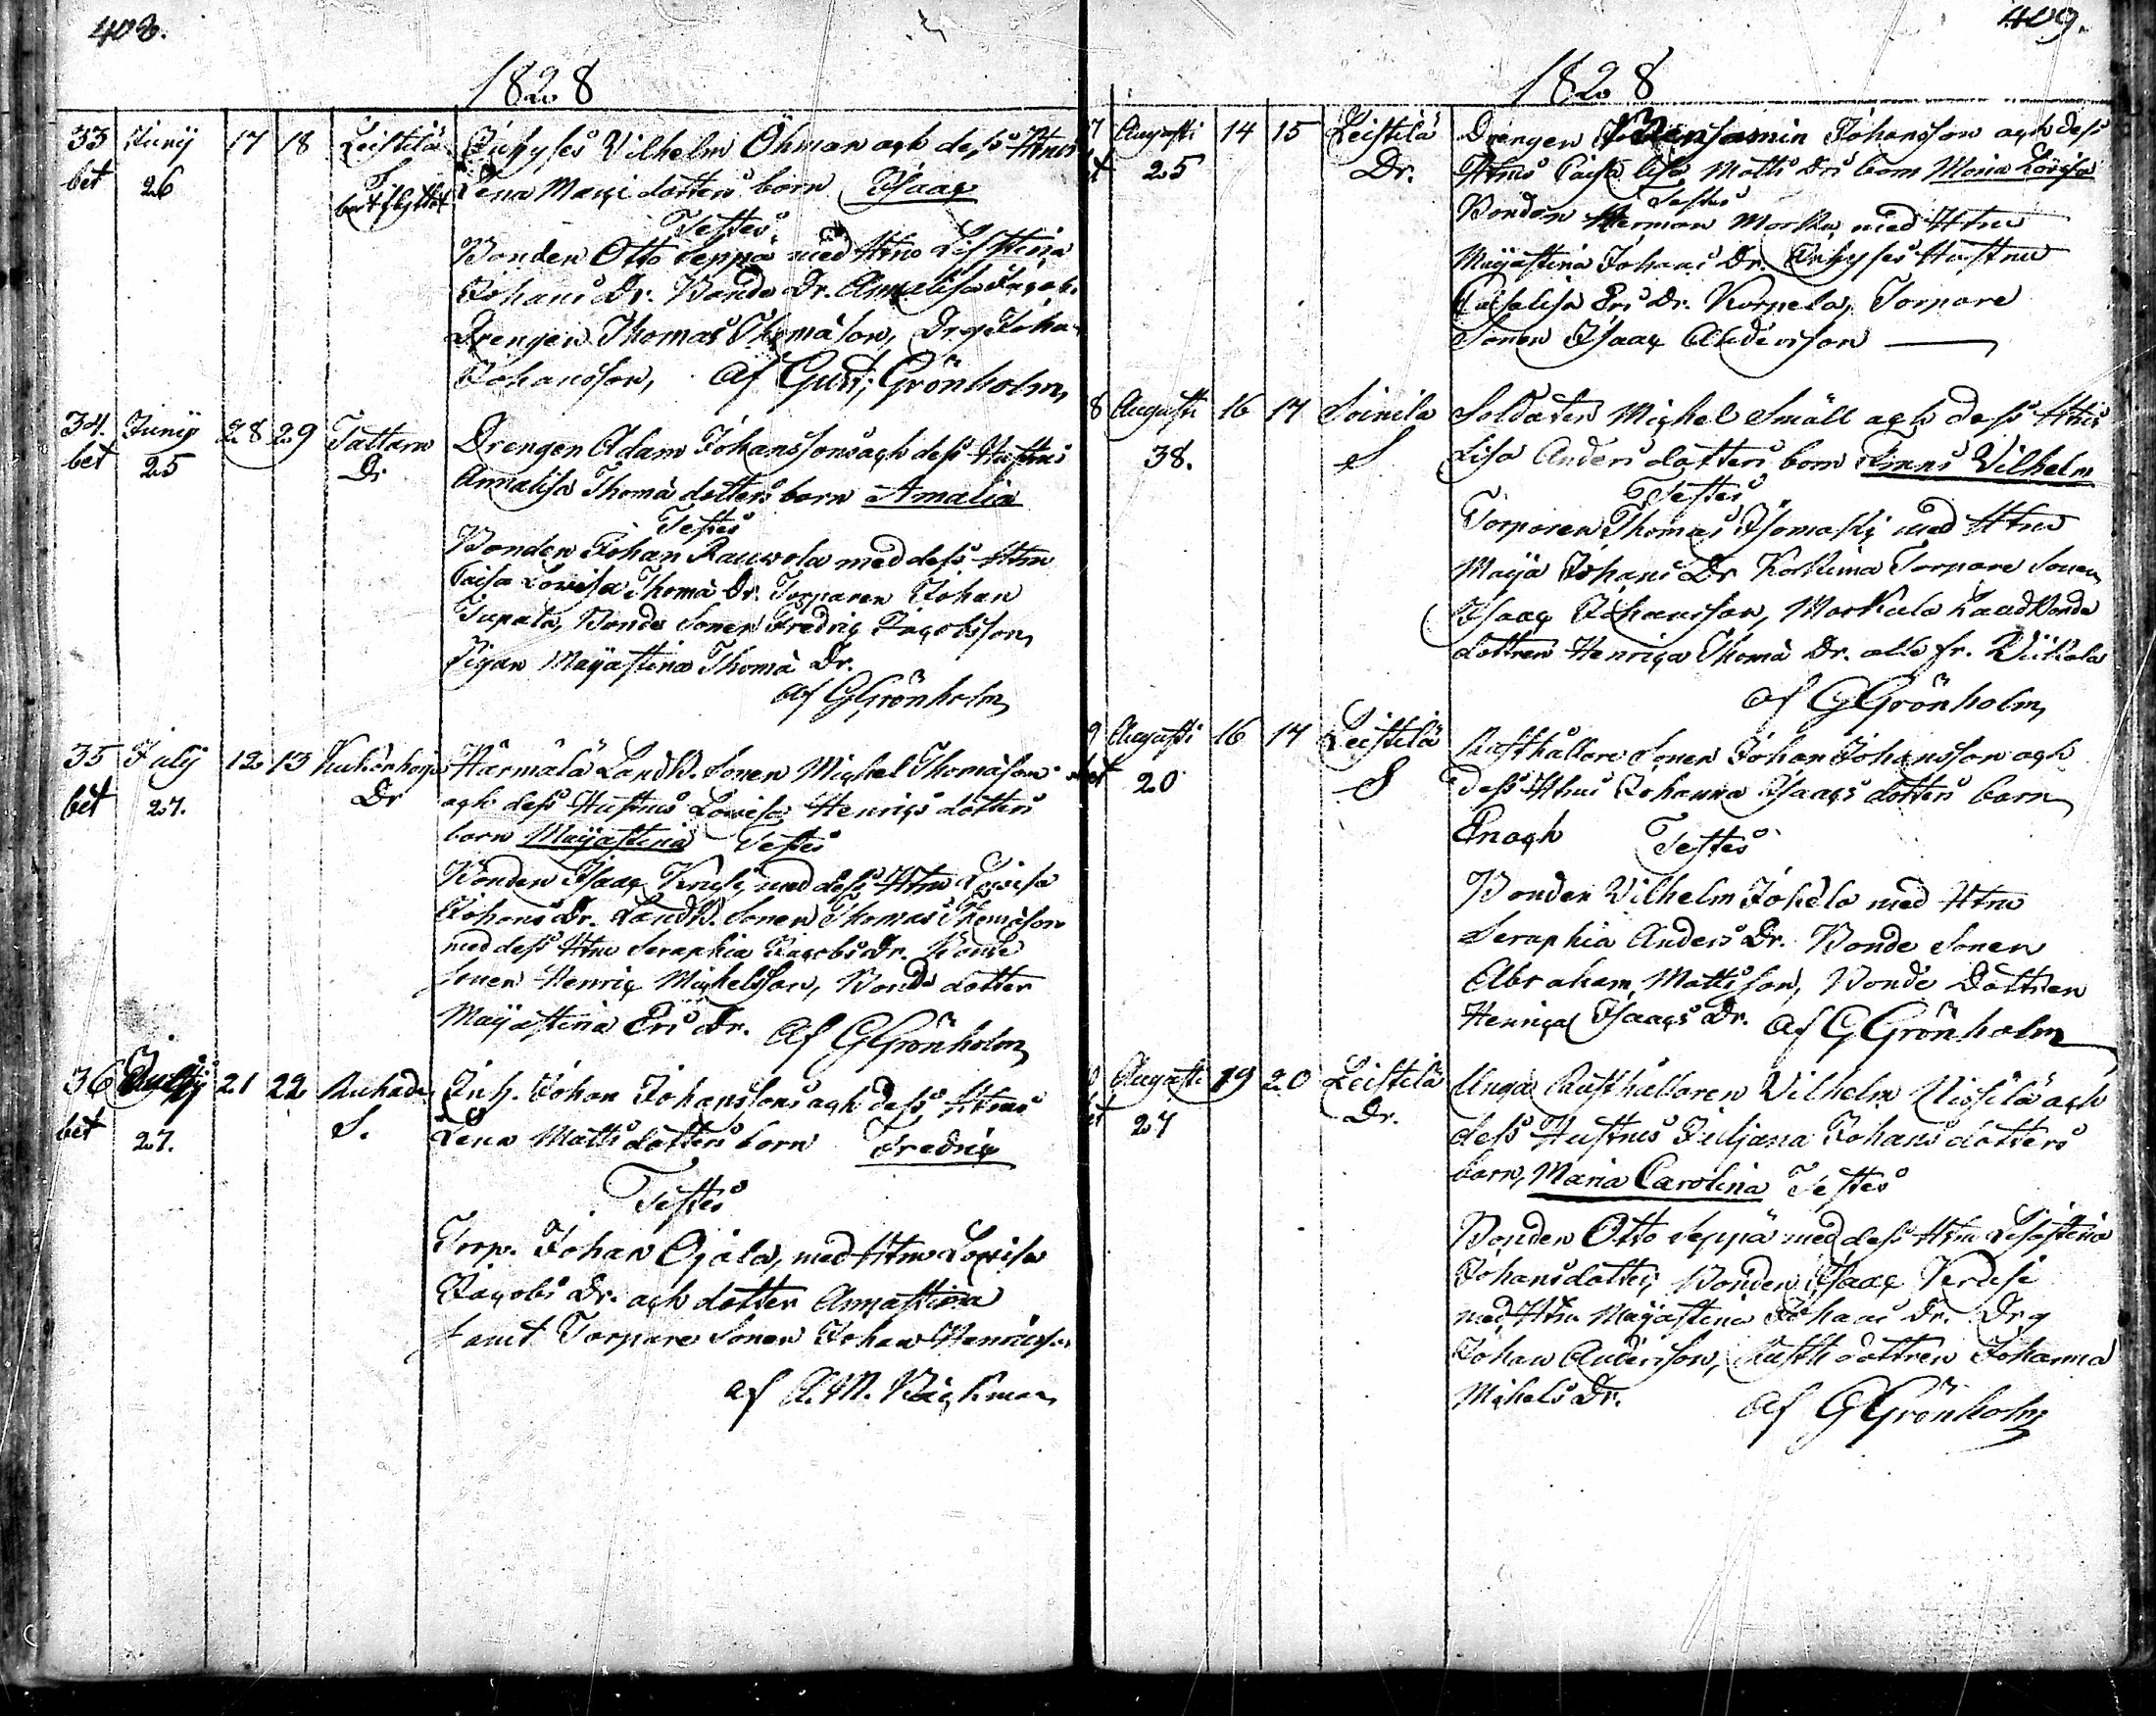 408.
1828
33 Junij 17 18 Leistilä Inhyses Vilhelm Öhman och dess Htrus
bet 26 S bortflyttat Lena Matsdotters barn Isaac
Testes
Bonden Otto Seppä med Htru Lisastina
Johans Dr. Bonde Dr. Annalisa Jacobs
Drengen Thomas Thomason, Drg Joha
Johansson, af Gust: Grönholm,
34. Junij 28 29 Tattara Drengen Adam Johanssons och dess Hustrus
bet 25 Dr Annalisa Thomä dotters barn Amalia
Testes
Bonden Johan Rauvola med dess Htru
Caisa Lovisa Thomä Dr. Torparen Johan
Tupala, Bonde Sonen Fredric Jacobsson,
Pigan Majastina Thomä Dr.
af GGrönholm,
35 Julij 12 13 Härmälä Landb. Sonen Michel Thomason
bet 27. Dr och dess Hustrus Lovisa Henrics dotters
barn Majastina Testes
Bonden Isaac Knusi med dess Htru Lovisa
Johans Dr. Landb. Sonen Thomas Thomason
med dess Htru Seraphia Jacobs Dr. Bonde
Sonen Henric Michelsson, Bonde dotter
Majastina Ers Dr. af GGrönholm,
36 Julij 21 22 Inh. Johan Johanssons och dess Htrus
bet 27. S. Lena Matts dotters barn Fredric
Testes
Torp. Johan Ojala, med Htru Lovisa
Jacobs Dr. och dotter Annastina
samt Torpare Sonen Johan
af A. M. Bäckman
409.
1828
7 Augusti 14 15 Leistilä Drengen Benjamin Johansson och dess
25 Dr. Htrus Caisa Lisa Matts Drs barn Maria Lovisa
Testes
Bonden Herman med Htru
Majastina Johans Dr. Inhyses Hustru
Caisalisa Ers Dr. Korpela, Torpare
Sonen Isaac Andersson
8 Augusti 16 17 Soinila Soldaten Michel Smäll och dess Htrus
38. S Lisa Anders dotters barn Frans Vilhelm
Testes
Torparen Thomas Isomäki med Htru
Maja Johans Dr Torpare Sonen
Isaac Johansson, Markula Landbonde
dottren Henrica Thomä Dr. alla fr.
af GGrönholm,
9 Augusti 16 17 Leistilä Rusthållare Sonen Johan Johansson och
bet 20 S dess Htrus Johanna Isaacs dotters barn
Enoch Testes
Bonden Vilhelm Jokela med Htru
Seraphia Anders Dr. Bonde Sonen
Abraham Mattsson, Bonde Dottren
Henrica Isaacs Dr. af GGrönholm
Augusti 19 20 Leistilä Unga Rusthållaren Vilhelm Nissilä och
27 Dr. dess Hustrus Juljana Johans dotters
barn, Maria Carolina Testes
Bonden Otto Seppä med dess Htru Lisastina
Johansdotter, Bonden Isaac
med Htru Majastina Johans Dr. Drg
Johan Andersson, Rusth. dottren Johanna
Michels Dr. af GGrönholm